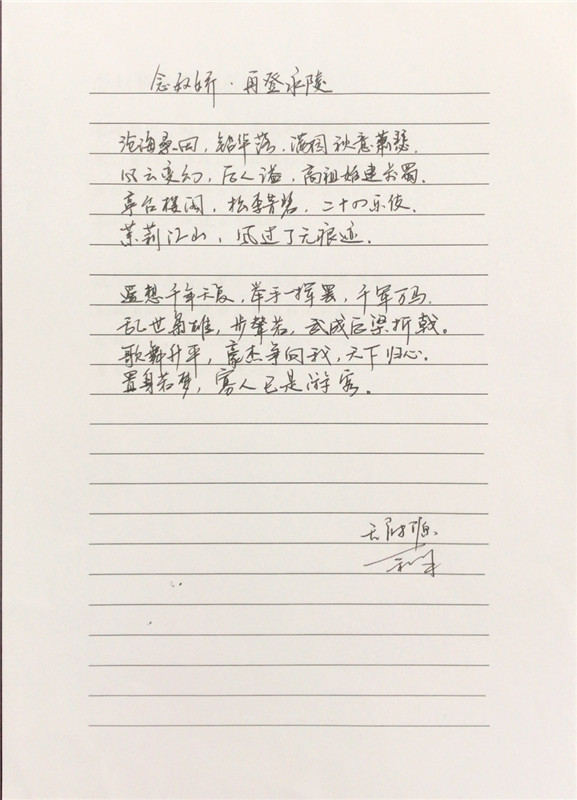 念奴娇·再登永陵
沧海桑田，铅华落，满园秋意萧瑟。
风云变幻，后人谥，高祖始建前蜀。
亭台楼阁，松季青碧，二十四乐伎。
茉莉江山，风过了无痕迹。
遥想千年大夏，举手一挥罢，千军万马。
乱世角雄，步辇若，武成后梁折戟。
歌舞升平，豪杰争向我，天下归心。
置身若梦，寡人已是游客。